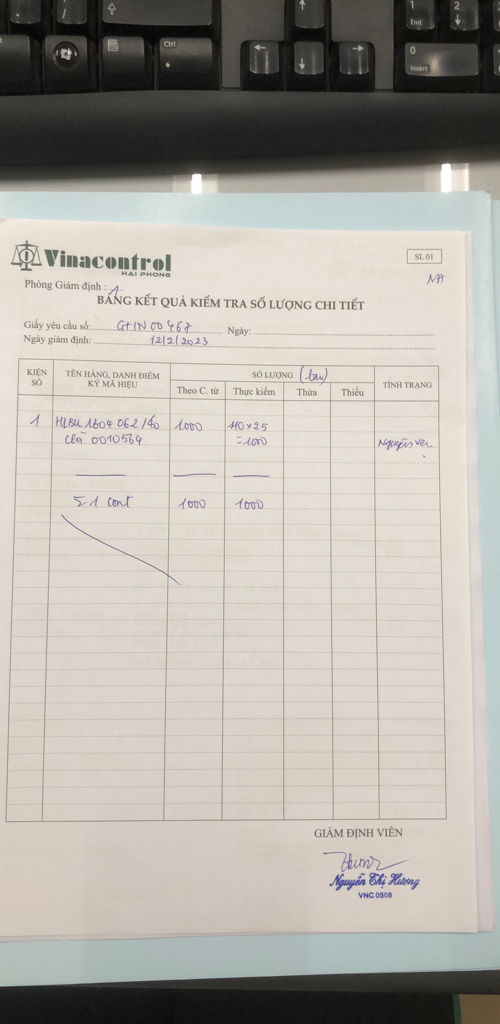 End
1
2
Ctrl
0
Insert
Vinacontrol
HAI PHONG
SL 01
Phòng Giám định : 1
BẢNG KẾT QUẢ KIỂM TRA SỐ LƯỢNG CHI TIẾT
Giấy yêu cầu số: 00467 Ngày:
Ngày giám định: 12/2/2023
KIỆN SỐ
TÊN HÀNG, DANH ĐIỂM
KÝ MÃ HIỆU
SỐ LƯỢNG (bao)
Theo C. từ Thực kiểm Thừa Thiếu
TÌNH TRẠNG
1 HLBU 1604 062 /40 1000 40 x 25
0010564 = 1000 Nguyên vẹn
Σ 1 cont 1000 1000
GIÁM ĐỊNH VIÊN
Nguyễn Thị Hương
VNC 0508